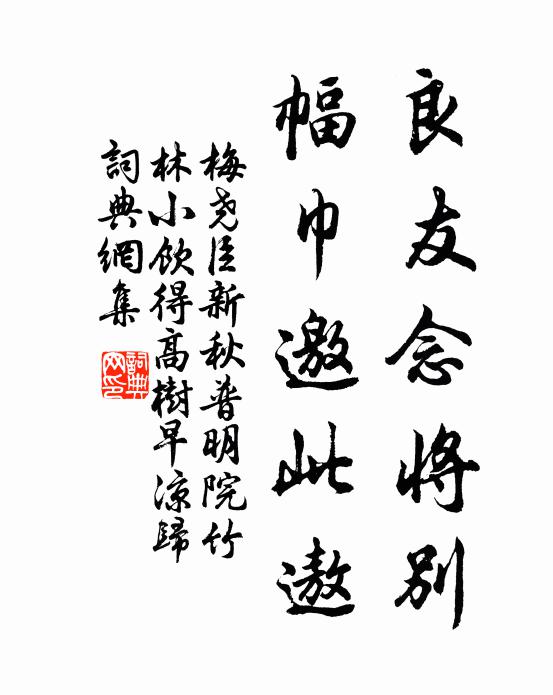 良友念将别
幅巾邀此遨
梅尧臣新秋普明院竹
林小飲得高樹早涼歸
詞典網集
詞典網印